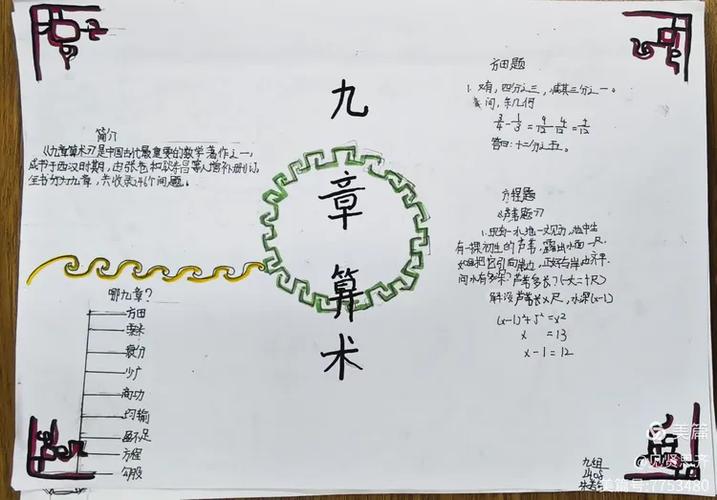 九
章
算
术
简介
《九章算术》是中国古代最重要的数学著作之一,
成书于西汉时期,由张苍和耿寿昌等人增补删订,
全书分为九章,共收录246个问题。
哪九章?
方田
粟米
衰分
少广
商功
均输
盈不足
方程
勾股
方田题
1. 又有,四分之三,减其三分之一。
问,余几何
3/4-1/3=9/12-4/12=5/12
答曰:十二分之五。
方程题
《芦苇题》
1.现有一水池一丈见方,池中生
有一棵初生的芦苇,露出水面一尺,
如把它引向岸边,正好与岸边齐平,
问水有多深?芦苇多长?(一丈=十尺)
解:设芦苇长x尺,水深(x-1)
(x-1)²+5²=x²
x =13
x-1=12
九组
2405
美篇
@见贤思齐
美篇号:7753480